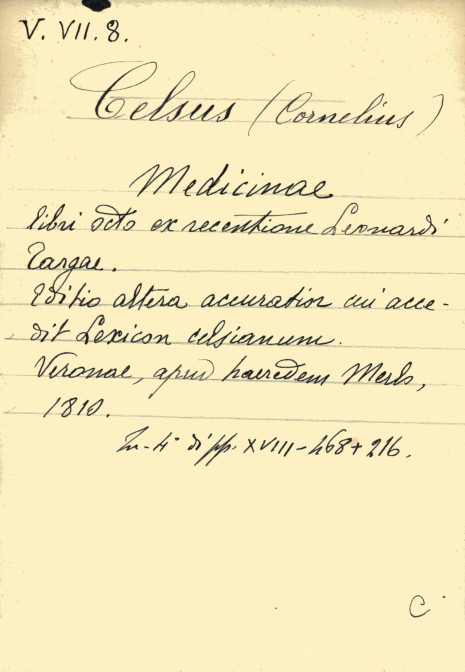 V. VII. 8.
Celsus (Cornelius)
Medicinae
libri octo ex recentione Leonardi
Targae.
Editio altera accuratior cui acce-
dit Lexicon celsianum.
Veronae, apud haeredem Merlo,
1810.
In-4° di pp. XVIII-468+216.
C